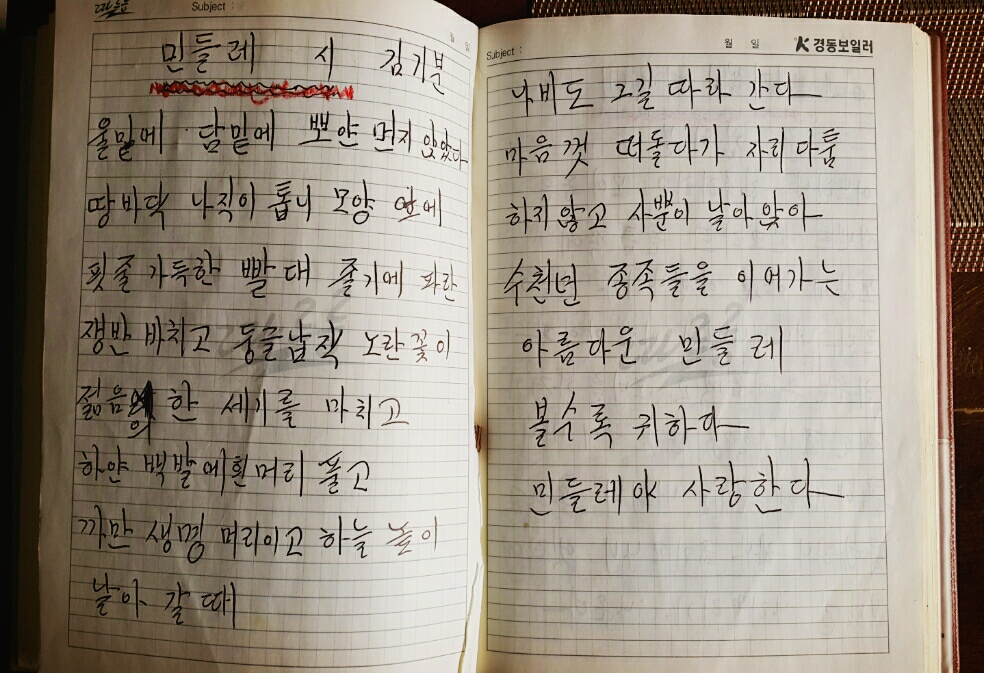 Subject :
월 일
민들레 시 김기분
울밑에 담밑에 뽀얀 먼지 앉았다
땅바닥 나직이 톱니 모양 잎에
핏줄 가득한 빨대 줄기에 파란
쟁반 바치고 둥글납작 노란꽃이
젊음의 한 세기를 마치고
하얀 백발에 흰머리 풀고
까만 생명 머리이고 하늘 높이
날아 갈 때
Subject :
월 일
경동보일러
나비도 그길 따라 간다
마음껏 떠돌다가 자리다툼
하지 않고 사뿐이 날아 앉아
수천년 종족들을 이어가는
아름다운 민들레
볼수록 귀하다
민들레야 사랑한다